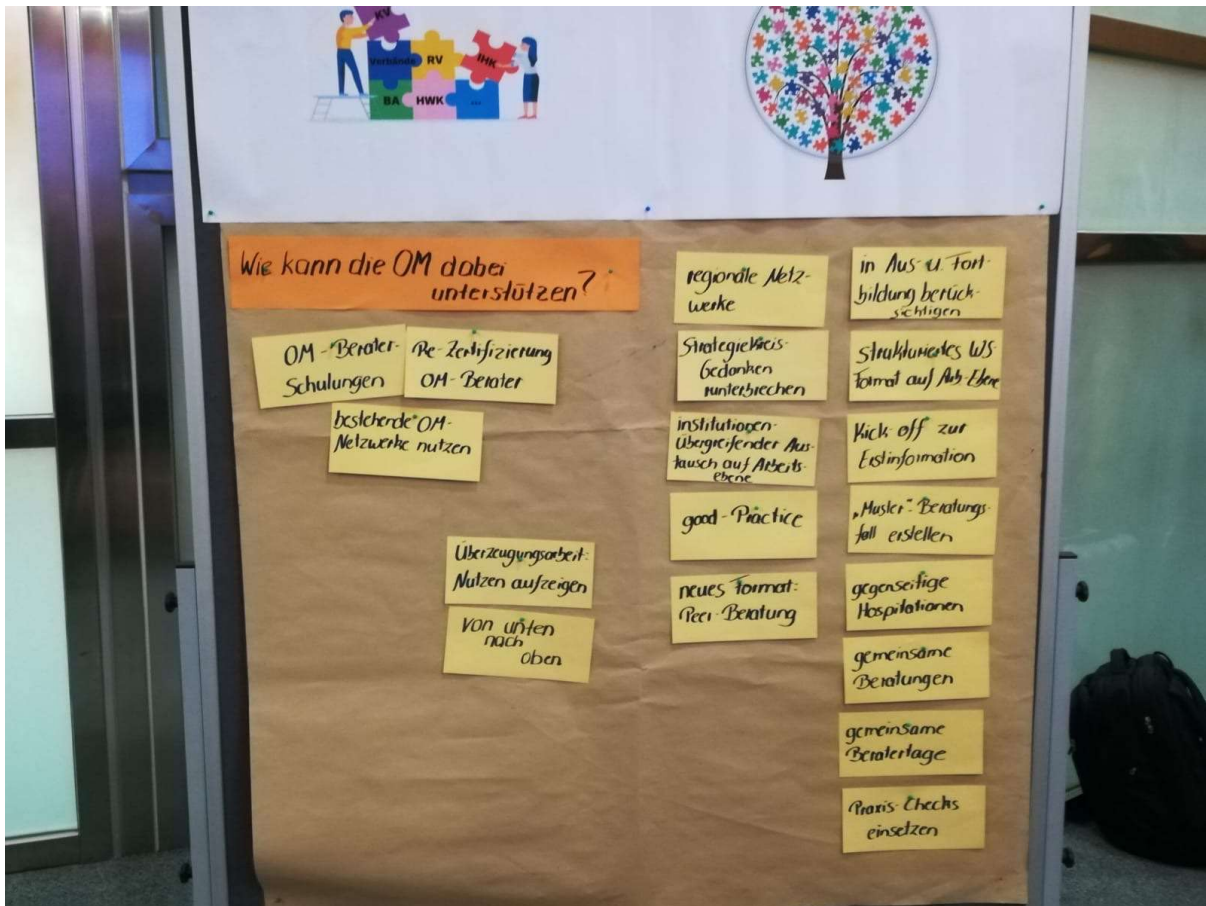 KV
Verbände RV IHK
BA HWK ...
Wie kann die OM dabei
unterstützen?
OM-Berater-
Schulungen
Re-Zertifizierung
OM-Berater
bestehende OM-
Netzwerke nutzen
Überzeugungsarbeit:
Nutzen aufzeigen
Von unten
nach
oben
regionale Netz-
werke
Strategiekreis-
Gedanken
runterbrechen
institutionen-
übergreifender Aus-
tausch auf Arbeits-
ebene
good-Practice
neues Format:
Peer-Beratung
in Aus- u. Fort-
bildung berück-
sichtigen
Strukturiertes WS-
Format auf Arb.-Ebene
Kick-off zur
Erstinformation
„Muster"-Beratungs-
fall erstellen
gegenseitige
Hospitationen
gemeinsame
Beratungen
gemeinsame
Beratertage
Praxis-Checks
einsetzen